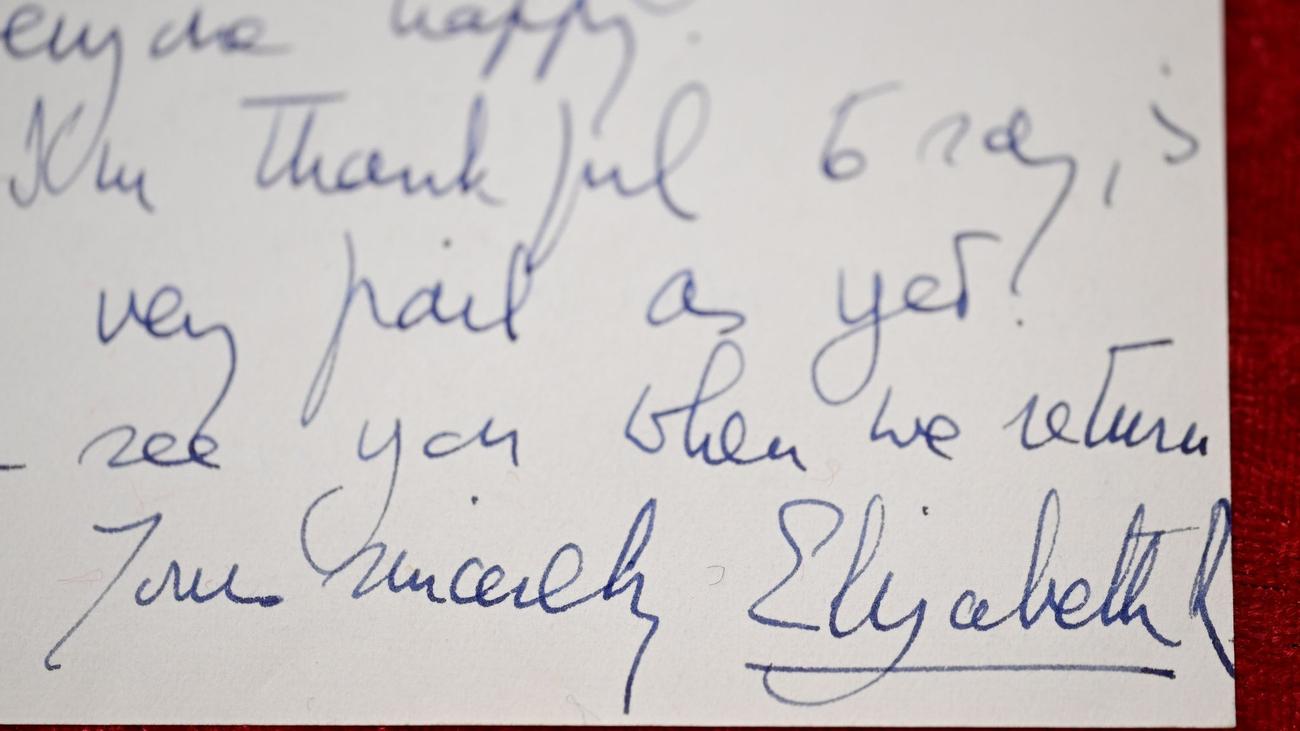 happy.
I'm thankful to say, is
very frail as yet.
- see you when we return
Yours sincerely Elizabeth R